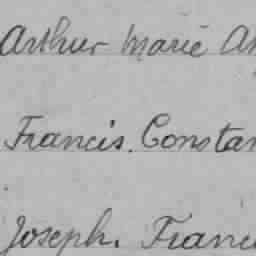 Arthur Marie
Francis. Constan
Joseph. Franci